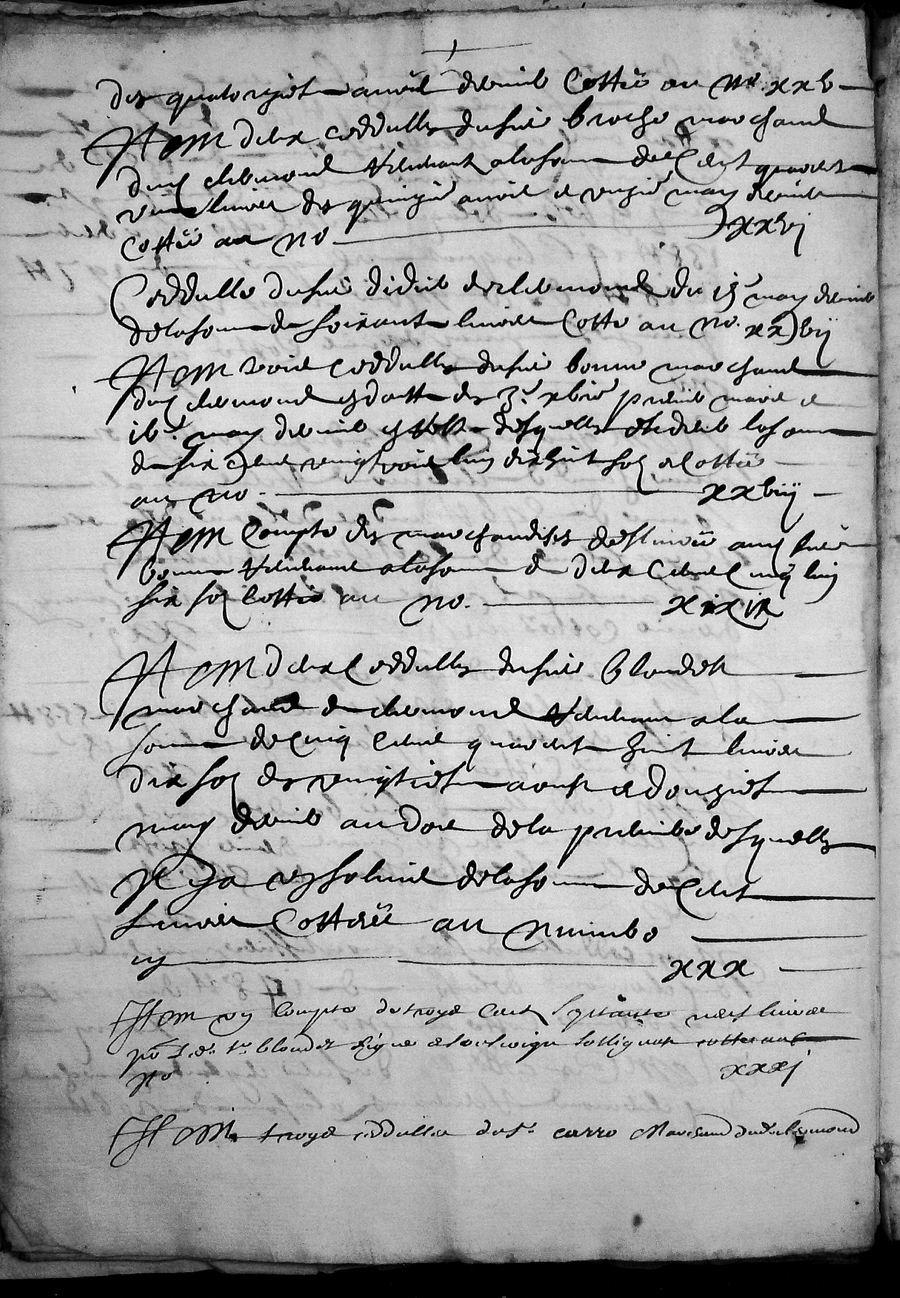 des quatorziet avril dernie Cottée au No. xxv
Item deux Ceddulles du sie broche marchand
dud clermond revenant a la som de Cent quarent
livres des quinzie avril et may dernie
Cottée au No xxvi
Ceddulle du sie didié de clermond du 19e may dernie
de la som de soixant livres Cotte au No. xxvij
Item trois Ceddulles du sie bonne marchand
dud clermond en datte des 3e xbre mars et
16e may dernie desquelles est deub la som
de six Cent vingt trois livres dix huit sol Cottée
au No. xxviij
Item Compte des marchandises aud sie
bonne revenant a la som de deux Cent Cinq livres
six sol Cottée au No. xxix
Item deux Ceddulles du sie blondet
marchand de clermond revenant a la
som de Cinq Cent quarent huit livres
dix sol des vingtiet aoust et douziet
may dernie au dos de la premiere desquelles
il y a un solvit de la som de Cent
livres Cottées au numero
xxx
Item un Compte de troye Cent septante neuf livres
blondet signé cotte au
No xxxj
Item troye cedulles du sr. carro Marchand dudt clermond